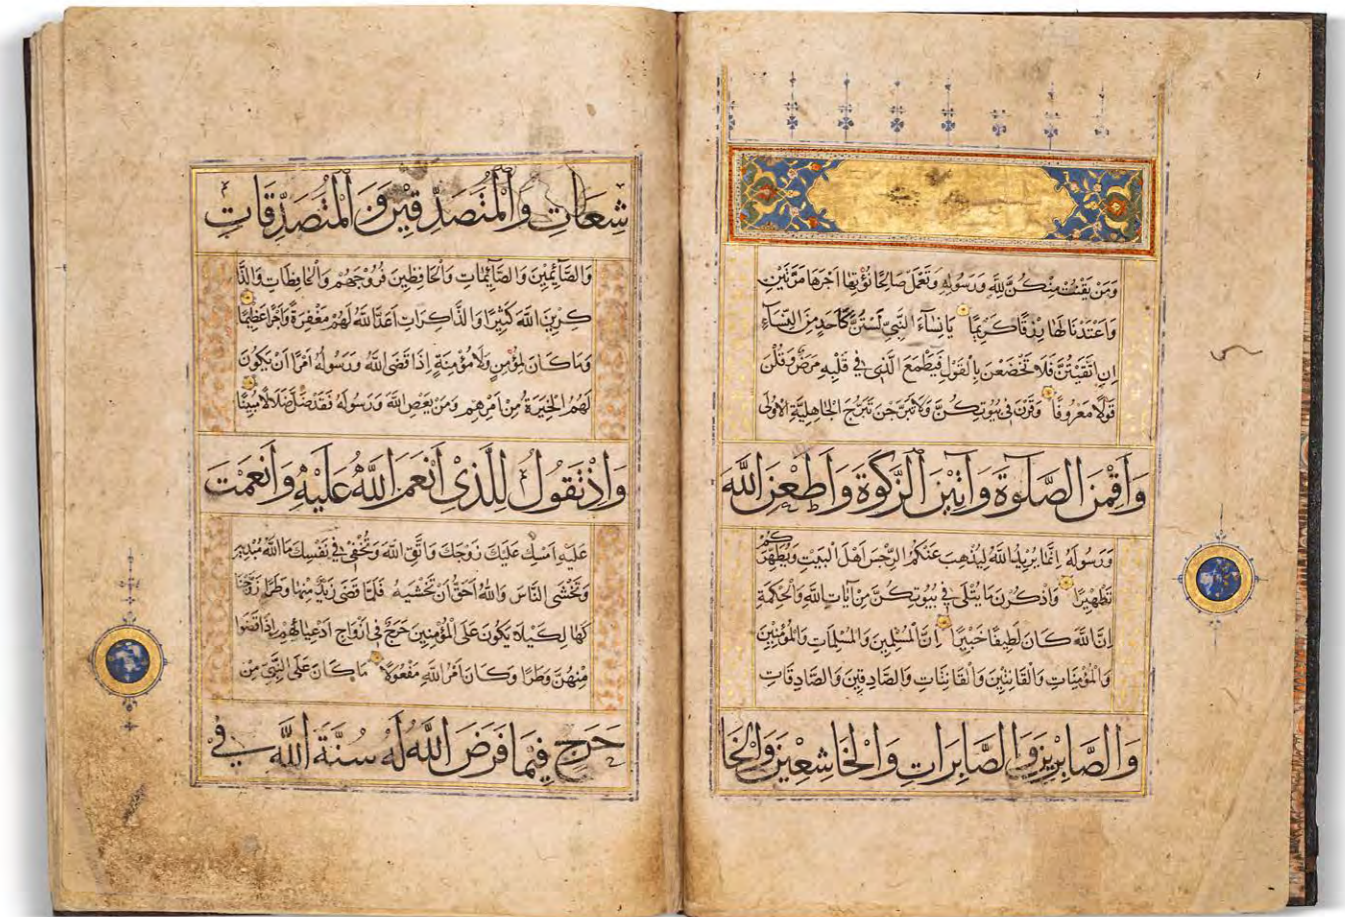 وَمَنْ يَقْنُتْ مِنْكُنَّ لِلَّهِ وَرَسُولِهِ وَتَعْمَلْ صَالِحًا نُؤْتِهَا اَجْرَهَا مَرَّتَيْنِ
وَاَعْتَدْنَا لَهَا رِزْقًا كَرِيمًا يَا نِسَآءَ النَّبِيِّ لَسْتُنَّ كَاَحَدٍ مِنَ النِّسَآءِ
اِنِ اتَّقَيْتُنَّ فَلَا تَخْضَعْنَ بِالْقَوْلِ فَيَطْمَعَ الَّذِي فِي قَلْبِهِ مَرَضٌ وَقُلْنَ
قَوْلًا مَعْرُوفًا وَقَرْنَ فِي بُيُوتِكُنَّ وَلَا تَبَرَّجْنَ تَبَرُّجَ الْجَاهِلِيَّةِ الْاُولٰى
وَاَقِمْنَ الصَّلٰوةَ وَاٰتِينَ الزَّكٰوةَ وَاَطِعْنَ اللّٰهَ
وَرَسُولَهُ اِنَّمَا يُرِيدُ اللّٰهُ لِيُذْهِبَ عَنْكُمُ الرِّجْسَ اَهْلَ الْبَيْتِ وَيُطَهِّرَكُمْ
تَطْهِيرًا وَاذْكُرْنَ مَا يُتْلٰى فِي بُيُوتِكُنَّ مِنْ اٰيَاتِ اللّٰهِ وَالْحِكْمَةِ
اِنَّ اللّٰهَ كَانَ لَطِيفًا خَبِيرًا اِنَّ الْمُسْلِمِينَ وَالْمُسْلِمَاتِ وَالْمُؤْمِنِينَ
وَالْمُؤْمِنَاتِ وَالْقَانِتِينَ وَالْقَانِتَاتِ وَالصَّادِقِينَ وَالصَّادِقَاتِ
وَالصَّابِرِينَ وَالصَّابِرَاتِ وَالْخَاشِعِينَ وَالْخَا
شِعَاتِ وَالْمُتَصَدِّقِينَ وَالْمُتَصَدِّقَاتِ
وَالصَّآئِمِينَ وَالصَّآئِمَاتِ وَالْحَافِظِينَ فُرُوجَهُمْ وَالْحَافِظَاتِ وَالذَّا
كِرِينَ اللّٰهَ كَثِيرًا وَالذَّاكِرَاتِ اَعَدَّ اللّٰهُ لَهُمْ مَغْفِرَةً وَاَجْرًا عَظِيمًا
وَمَا كَانَ لِمُؤْمِنٍ وَلَا مُؤْمِنَةٍ اِذَا قَضَى اللّٰهُ وَرَسُولُهُ اَمْرًا اَنْ يَكُونَ
لَهُمُ الْخِيَرَةُ مِنْ اَمْرِهِمْ وَمَنْ يَعْصِ اللّٰهَ وَرَسُولَهُ فَقَدْ ضَلَّ ضَلَالًا مُبِينًا
وَاِذْ تَقُولُ لِلَّذِي اَنْعَمَ اللّٰهُ عَلَيْهِ وَاَنْعَمْتَ
عَلَيْهِ اَمْسِكْ عَلَيْكَ زَوْجَكَ وَاتَّقِ اللّٰهَ وَتُخْفِي فِي نَفْسِكَ مَا اللّٰهُ مُبْدِيهِ
وَتَخْشَى النَّاسَ وَاللّٰهُ اَحَقُّ اَنْ تَخْشٰيهُ فَلَمَّا قَضٰى زَيْدٌ مِنْهَا وَطَرًا زَوَّجْنَا
كَهَا لِكَيْلَا يَكُونَ عَلَى الْمُؤْمِنِينَ حَرَجٌ فِي اَزْوَاجِ اَدْعِيَآئِهِمْ اِذَا قَضَوْا
مِنْهُنَّ وَطَرًا وَكَانَ اَمْرُ اللّٰهِ مَفْعُولًا مَا كَانَ عَلَى النَّبِيِّ مِنْ
حَرَجٍ فِيمَا فَرَضَ اللّٰهُ لَهُ سُنَّةَ اللّٰهِ فِي